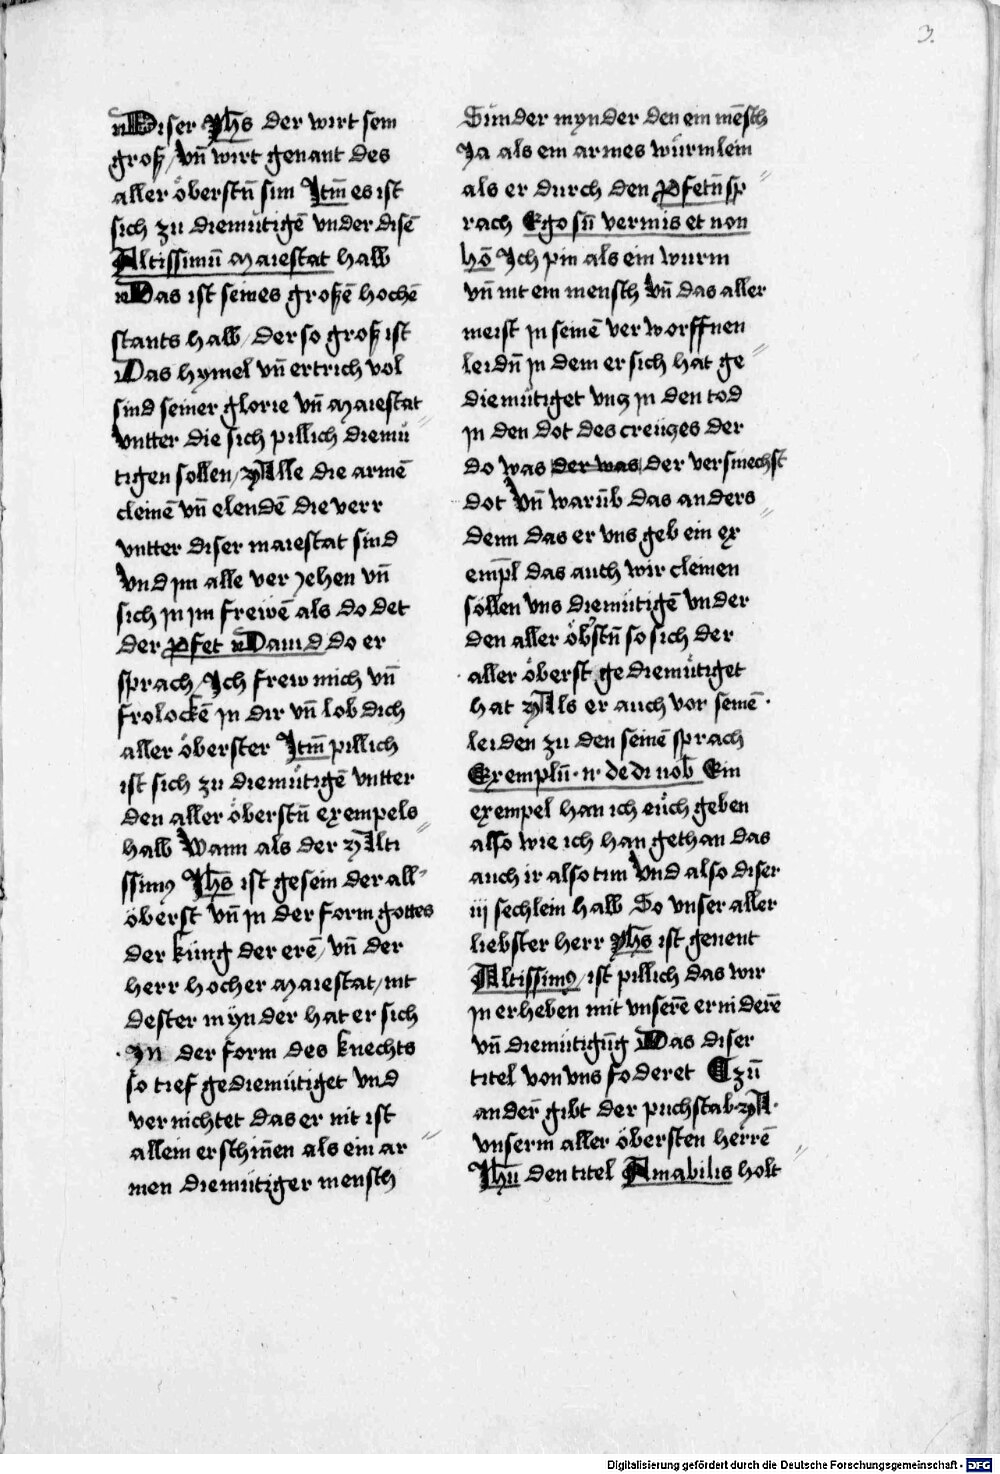 3.
Diser Jhs̄ der wirt sein
groß / vn̄ wirt genant des
aller öberstn̄ sun Jtm̄ es ist
sich zu diemütigē vnder disē
Altissimū maiestat halb
Das ist seines großē hochē
stants halb / der so groß ist
Das hymel vn̄ ertrich vol
sind seiner glorie vn̄ maiestat
vntter die sich pillich diemü
tigen sollen / Alle die armē
cleinē vn̄ elendē die verr
vntter diser maiestat sind
vnd im alle veryehen vn̄
sich in im frewē als do det
der Pfet Dauid do er
sprach / Jch frew mich vn̄
frolockē in dir vn̄ lob dich
aller öberster Jtm̄ pillich
ist sich zu diemütigē vntter
den aller öberstn̄ exempels
halb Wann als der Alti
ssimꝰ Jhs̄ ist gesein der all
öberst vn̄ in der form gottes
der küng der erē / vn̄ der
herr hocher maiestat / nit
dester mynder hat er sich
Jn der form des knechts
so tief gediemütiget vnd
vernichtet das er nit ist
allein erschin̄en als ein ar
men diemütiger mensch
Sünder mynder den ein mēsch
Ja als ein armes würmlein
als er durch den Pfetn̄ sp
rach Ego sū vermis et non
hō Jch pin als ein wurm
vn̄ nit ein mensch vn̄ das aller
meist in seinē verworffnen
leidn̄ in dem er sich hat ge
diemütiget vnꝫ in den tod
in den dot des creüčzes der
do was der was der versmechst
dot vn̄ warūb das anders
denn das er vns geb ein ex
empl̄ das auch wir cleinen
söllen vns diemütigē vnder
den aller öbstn̄ so sich der
aller öberst gediemütiget
hat Als er auch vor seinē
leiden zu den seinē sprach
Exemplū n̄ dedi uob̄ Ein
exempel han ich eüch geben
also wie ich han gethan das
auch ir also tun vnd also diser
iij sechlein halb So vnser aller
liebster herr Jhs̄ ist genent
Altissimꝰ / ist pillich das wir
in erheben mit vnserē erniderē
vn̄ diemütigūg Das diser
titel von vns foderet Czū
ander̄ gibt der puchstab A
vnserm aller öbersten herrē
Jhū den titel Amabilis holt
Digitalisierung gefördert durch die Deutsche Forschungsgemeinschaft - DFG